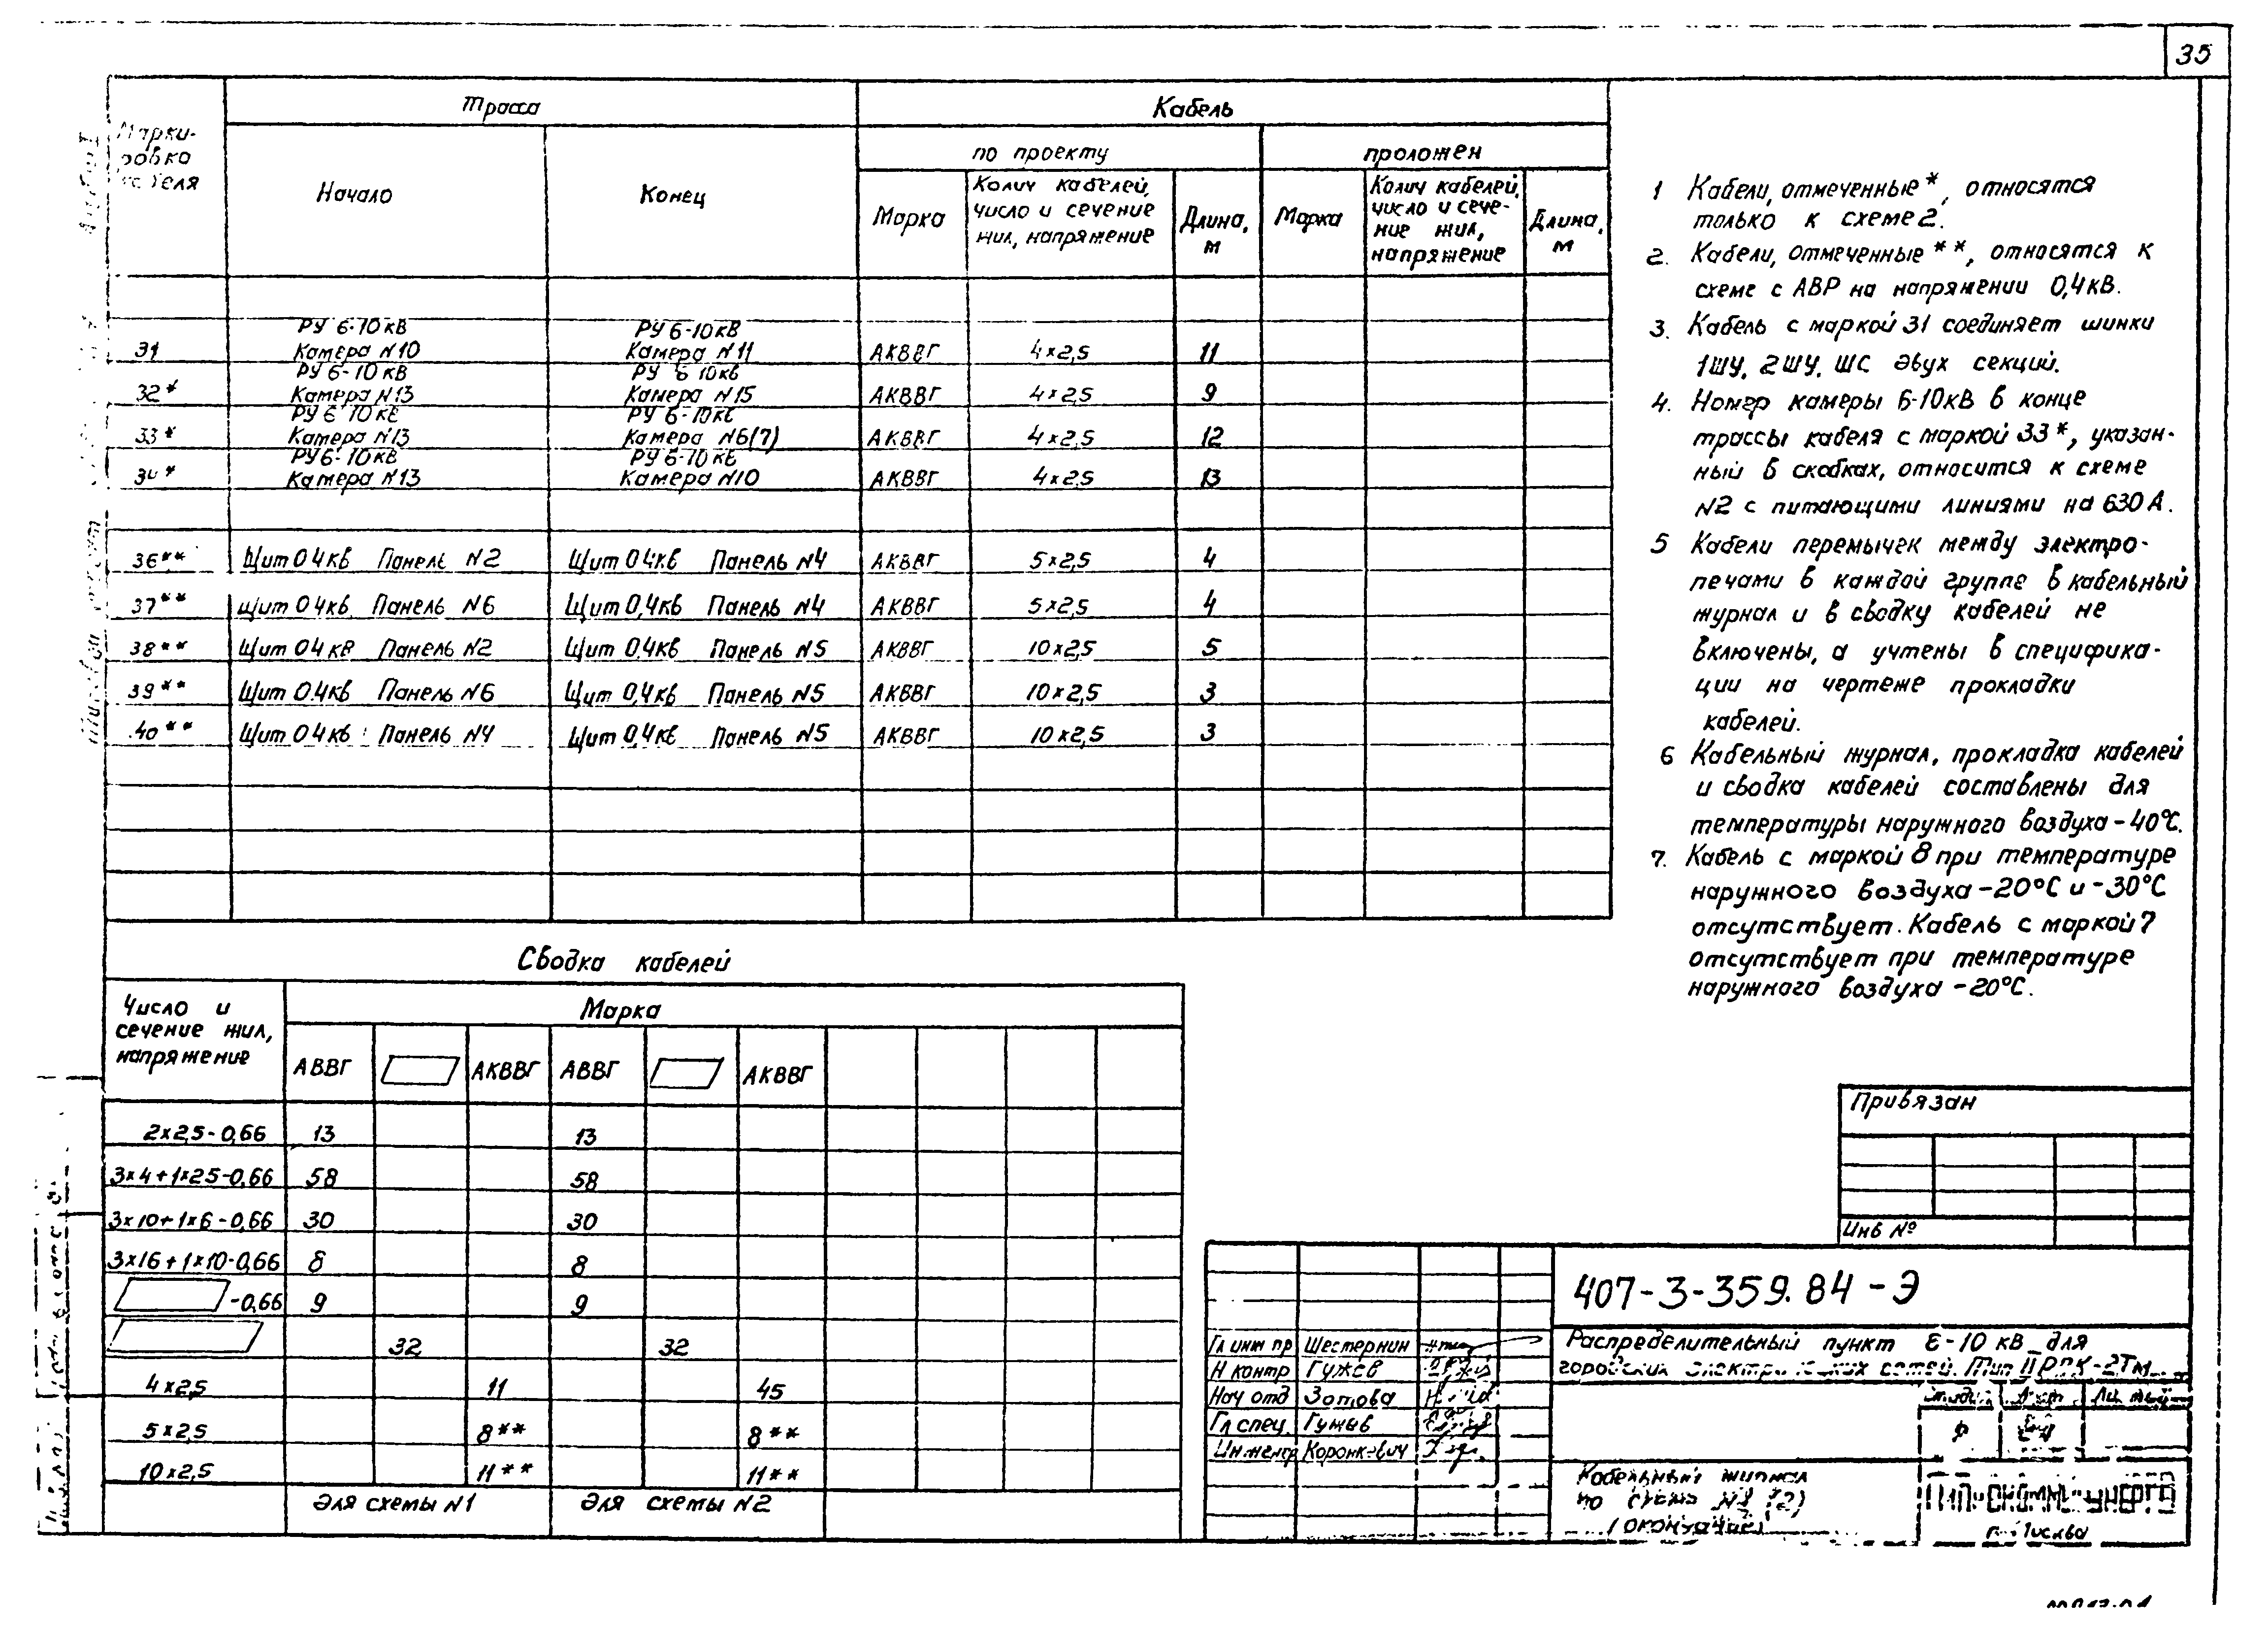 35
Трасса
Кабель
Марки-
ровка
кабеля
Начало
Конец
по проекту
проложен
Марка
Колич кабелей,
число и сечение
жил, напряжение
Длина,
м
Марка
Колич кабелей,
число и сече-
ние жил,
напряжение
Длина,
м
РУ 6-10кВ РУ 6-10кВ
31 Камера №10 Камера №11 АКВВГ 4×2,5 11
РУ 6-10кВ РУ 6 10кВ
32* Камера №13 Камера №15 АКВВГ 4×2,5 9
РУ 6 10кВ РУ 6-10кВ
33* Камера №13 Камера №6(7) АКВВГ 4×2,5 12
РУ 6-10кВ РУ 6-10кВ
34* Камера №13 Камера №10 АКВВГ 4×2,5 13
36** Щит 0 4кВ Панель №2 Щит 0 4кВ Панель №4 АКВВГ 5×2,5 4
37** Щит 0 4кВ Панель №6 Щит 0,4кВ Панель №4 АКВВГ 5×2,5 4
38** Щит 0 4кВ Панель №2 Щит 0.4кВ Панель №5 АКВВГ 10×2,5 5
39** Щит 0.4кВ Панель №6 Щит 0,4кВ Панель №5 АКВВГ 10×2,5 3
40** Щит 0 4кВ Панель №4 Щит 0,4кВ Панель №5 АКВВГ 10×2,5 3
1 Кабели, отмеченные *, относятся
только к схеме 2.
2. Кабели, отмеченные **, относятся к
схеме с АВР на напряжении 0,4кВ.
3. Кабель с маркой 31 соединяет шинки
1ШУ, 2ШУ, ШС двух секций.
4. Номер камеры 6-10кВ в конце
трассы кабеля с маркой 33*, указан-
ный в скобках, относится к схеме
№2 с питающими линиями на 630 А.
5 Кабели перемычек между электро-
печами в каждой группе в кабельный
журнал и в сводку кабелей не
включены, а учтены в специфика-
ции на чертеже прокладки
кабелей.
6 Кабельный журнал, прокладка кабелей
и сводка кабелей составлены для
температуры наружного воздуха -40°С.
7. Кабель с маркой 8 при температуре
наружного воздуха -20°С и -30°С
отсутствует. Кабель с маркой 7
отсутствует при температуре
наружного воздуха -20°С.
Сводка кабелей
Число и
сечение жил,
напряжение
Марка
АВВГ АКВВГ АВВГ АКВВГ
2×2,5-0,66 13 13
3×4+1×2,5-0,66 58 58
3×10+1×6-0,66 30 30
3×16+1×10-0,66 8 8
-0,66 9 9
32 32
4×2,5 11 45
5×2,5 8** 8**
10×2,5 11** 11**
Для схемы №1 Для схемы №2
Привязан
Инв №
407-3-359.84-Э
Гл инж пр Шестернин
Н контр Гужев
Нач отд Зотова
Гл спец. Гужев
Инженер Коронкевич
Распределительный пункт 6-10 кВ для
городских электрических сетей. Тип
Стадия Лист
Р
Кабельный журнал
по схеме
(окончание)
Москва